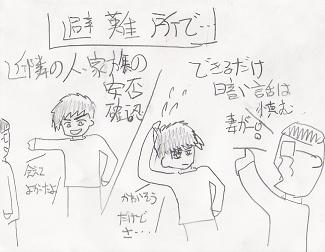 避難所で…
近隣の人・家族の
安否
確認
会えて
よかったな!
かわいそう
だけど
さ・・・
できるだけ
暗い話は
慎む
妻が…。